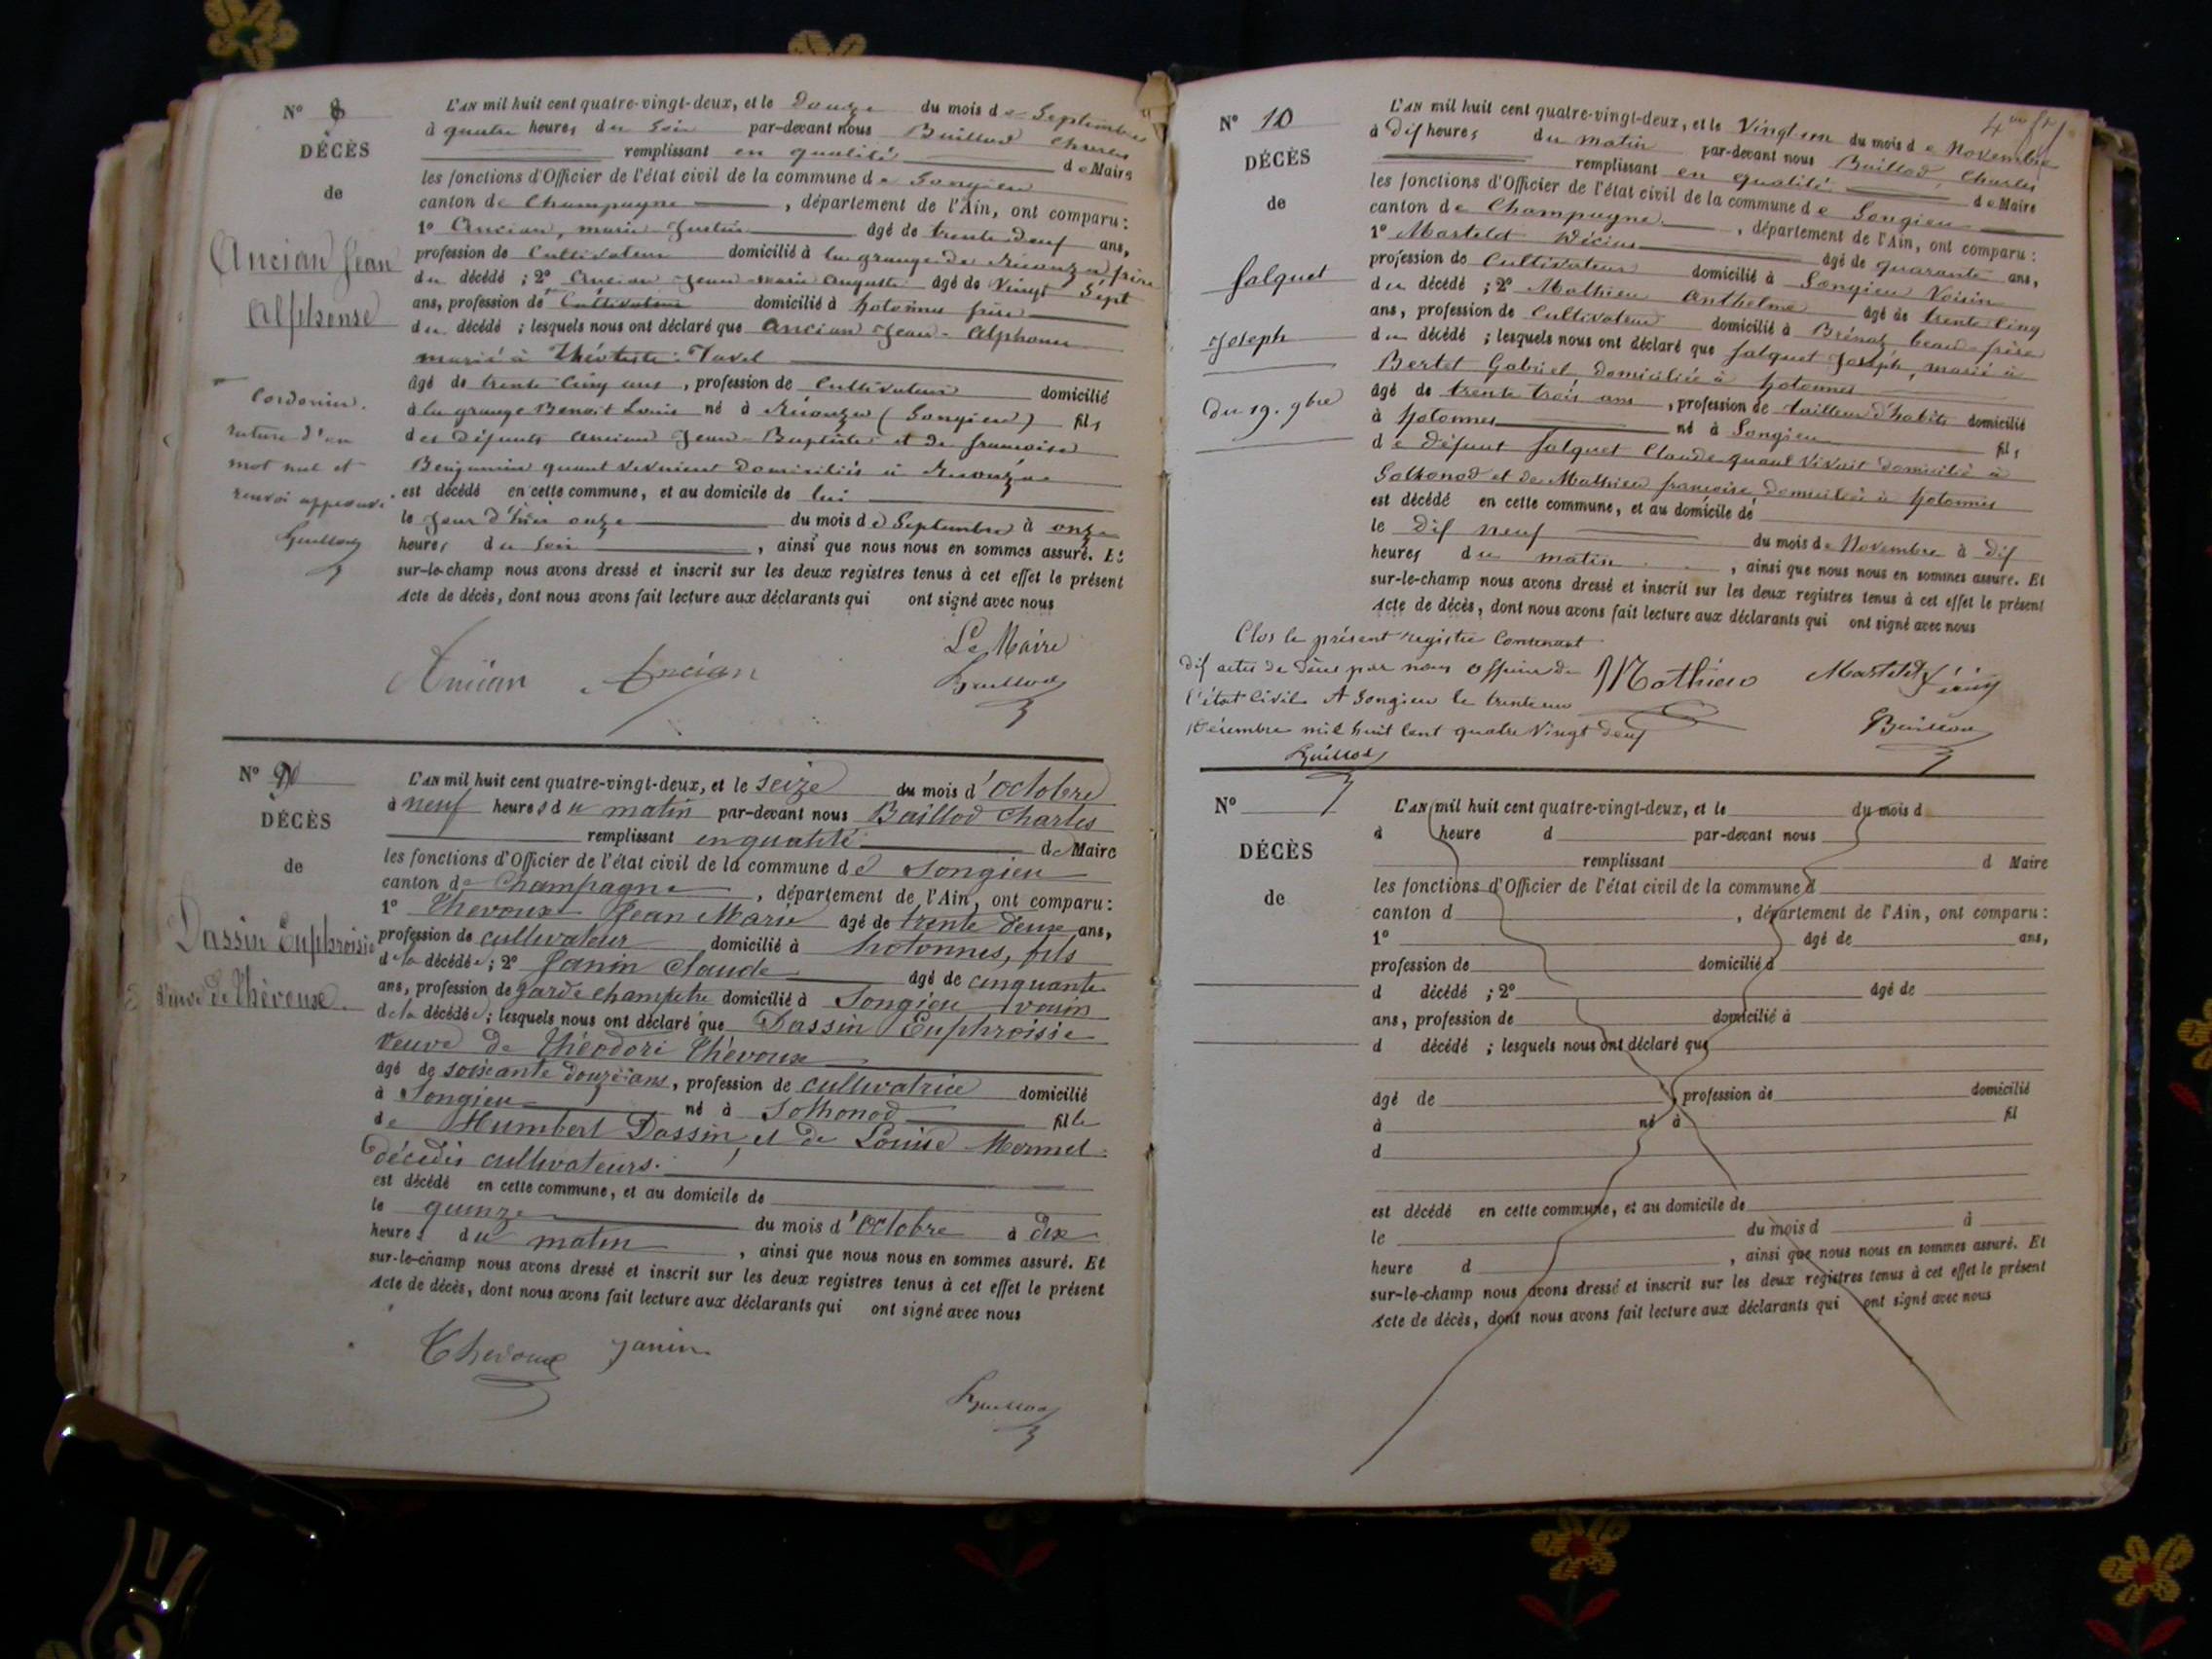 N° 8
DÉCÈS
de
Ancian Jean
Alphonse
Cordonier.
rature d'un
mot nul et
renvoi approuvé
Baillod
L'AN mil huit cent quatre-vingt-deux, et le douze du mois de Septembre
à quatre heures du soir par-devant nous Baillod Charles
remplissant en qualité de Maire
les fonctions d'Officier de l'état civil de la commune de Songieu
canton de Champagne, département de l'Ain, ont comparu:
1° Ancian, marie Justin âgé de trente deux ans,
profession de Cultivateur domicilié à la grange de frère
du décédé; 2° Ancian Jean marie Auguste âgé de Vingt Sept
ans, profession de Cultivateur domicilié à hotonnes frère
du décédé; lesquels nous ont déclaré que Ancian Jean-Alphonse
marié à Tavel
âgé de trente Cinq ans, profession de Cultivateur domicilié
à la grange Benoit Louis né à (Songieu) fils
des défunts Ancian Jean-Baptiste et de françoise
Benjamin quant vivaient domiciliés à
est décédé en cette commune, et au domicile de lui
le Jour d'hier onze du mois de Septembre à onze
heures du soir, ainsi que nous nous en sommes assuré. Et
sur-le-champ nous avons dressé et inscrit sur les deux registres tenus à cet effet le présent
Acte de décès, dont nous avons fait lecture aux déclarants qui ont signé avec nous
Le Maire
Ancian Ancian Baillod
N° 9
DÉCÈS
de
Dassin Euphroisie
veuve de Thévoux.
L'AN mil huit cent quatre-vingt-deux, et le seize du mois d'octobre
à neuf heures du matin par-devant nous Baillod Charles
remplissant en qualité de Maire
les fonctions d'Officier de l'état civil de la commune de Songieu
canton de Champagne, département de l'Ain, ont comparu:
1° Thevoux Jean Marie âgé de trente deux ans,
profession de cultivateur domicilié à hotonnes, fils
de la décédée; 2° Janin Claude âgé de cinquante
ans, profession de garde champetre domicilié à Songieu voisin
de la décédée; lesquels nous ont déclaré que Dassin Euphroisie
veuve de Théodore Thévoux
âgé de soixante douze ans, profession de cultivatrice domicilié
à Songieu né à Sothonod fille
de Humbert Dassin et de Louise Mermet
décédés cultivateurs.
est décédé en cette commune, et au domicile de
le quinze du mois d'Octobre à dix
heures du matin, ainsi que nous nous en sommes assuré. Et
sur-le-champ nous avons dressé et inscrit sur les deux registres tenus à cet effet le présent
Acte de décès, dont nous avons fait lecture aux déclarants qui ont signé avec nous
Thevoux Janin
Baillod
N° 10
DÉCÈS
de
falquet
Joseph
du 19. 9bre
L'AN mil huit cent quatre-vingt-deux, et le Vingt un du mois de Novembre
à dix heures du matin par-devant nous Baillod, Charles
remplissant en qualité de Maire
les fonctions d'Officier de l'état civil de la commune de Songieu
canton de Champagne, département de l'Ain, ont comparu:
1° Martelet Décius âgé de quarante ans,
profession de Cultivateur domicilié à Songieu Voisin
du décédé; 2° Mathieu Anthelme âgé de trente Cinq
ans, profession de Cultivateur domicilié à Brénaz beau-frère
du décédé; lesquels nous ont déclaré que falquet Joseph, marié à
Bertet Gabriel domiciliée à hotonnes
âgé de trente trois ans, profession de tailleur d'habits domicilié
à hotonnes né à Songieu fils
de défunt falquet Claude quant vivait domicilié à
Sothonod et de Mathieu françoise domiciliée à hotonnes
est décédé en cette commune, et au domicile de
le dix neuf du mois de Novembre à dix
heures du matin, ainsi que nous nous en sommes assuré. Et
sur-le-champ nous avons dressé et inscrit sur les deux registres tenus à cet effet le présent
Acte de décès, dont nous avons fait lecture aux déclarants qui ont signé avec nous
Clos le présent registre Contenant
dix actes de décès par nous officier de
l'état Civil. A Songieu le trente un
Décembre mil huit Cent quatre Vingt deux
Baillod
Mathieu Martelet
Baillod
N°
DÉCÈS
de
L'AN mil huit cent quatre-vingt-deux, et le du mois d
à heure d par-devant nous
remplissant d Maire
les fonctions d'Officier de l'état civil de la commune d
canton d , département de l'Ain, ont comparu:
1° âgé de ans,
profession de domicilié à
d décédé ; 2° âgé de
ans, profession de domicilié à
d décédé ; lesquels nous ont déclaré que
âgé de , profession de domicilié
à né à fil
d
est décédé en cette commune, et au domicile de
le du mois d à
heure d , ainsi que nous nous en sommes assuré. Et
sur-le-champ nous avons dressé et inscrit sur les deux registres tenus à cet effet le présent
Acte de décès, dont nous avons fait lecture aux déclarants qui ont signé avec nous